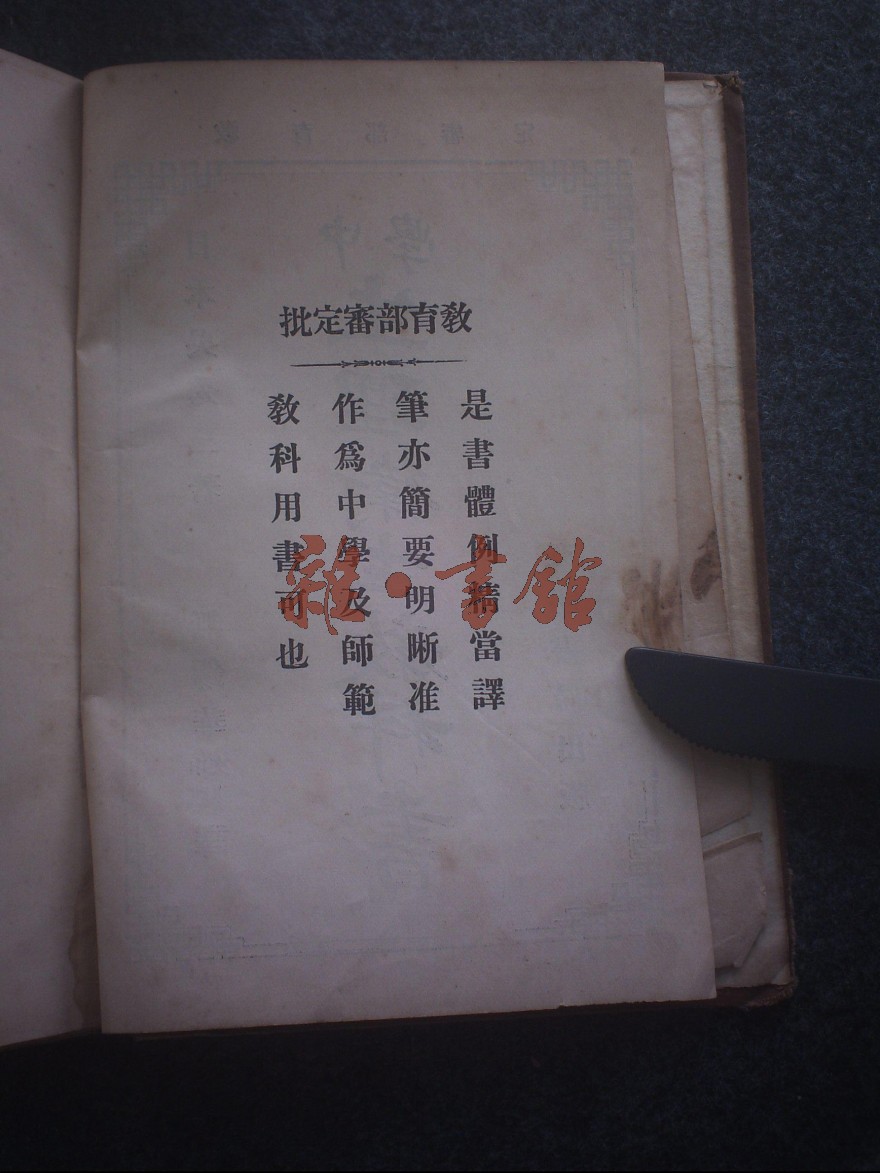 教育部審定批
是書體例精當譯
筆亦簡要明晰准
作爲中學及師範
教科用書可也
雜·書館